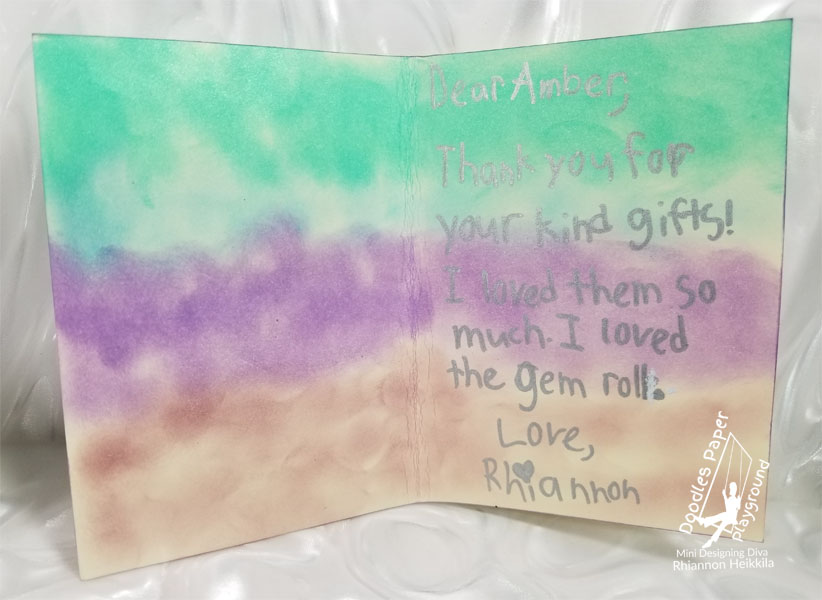 Dear Amber,
Thank you for
your kind gifts!
I loved them so
much. I loved
the gem roll.
Love,
Rhiannon
Doodles Paper
Playground
Mini Designing Diva
Rhiannon Heikkila